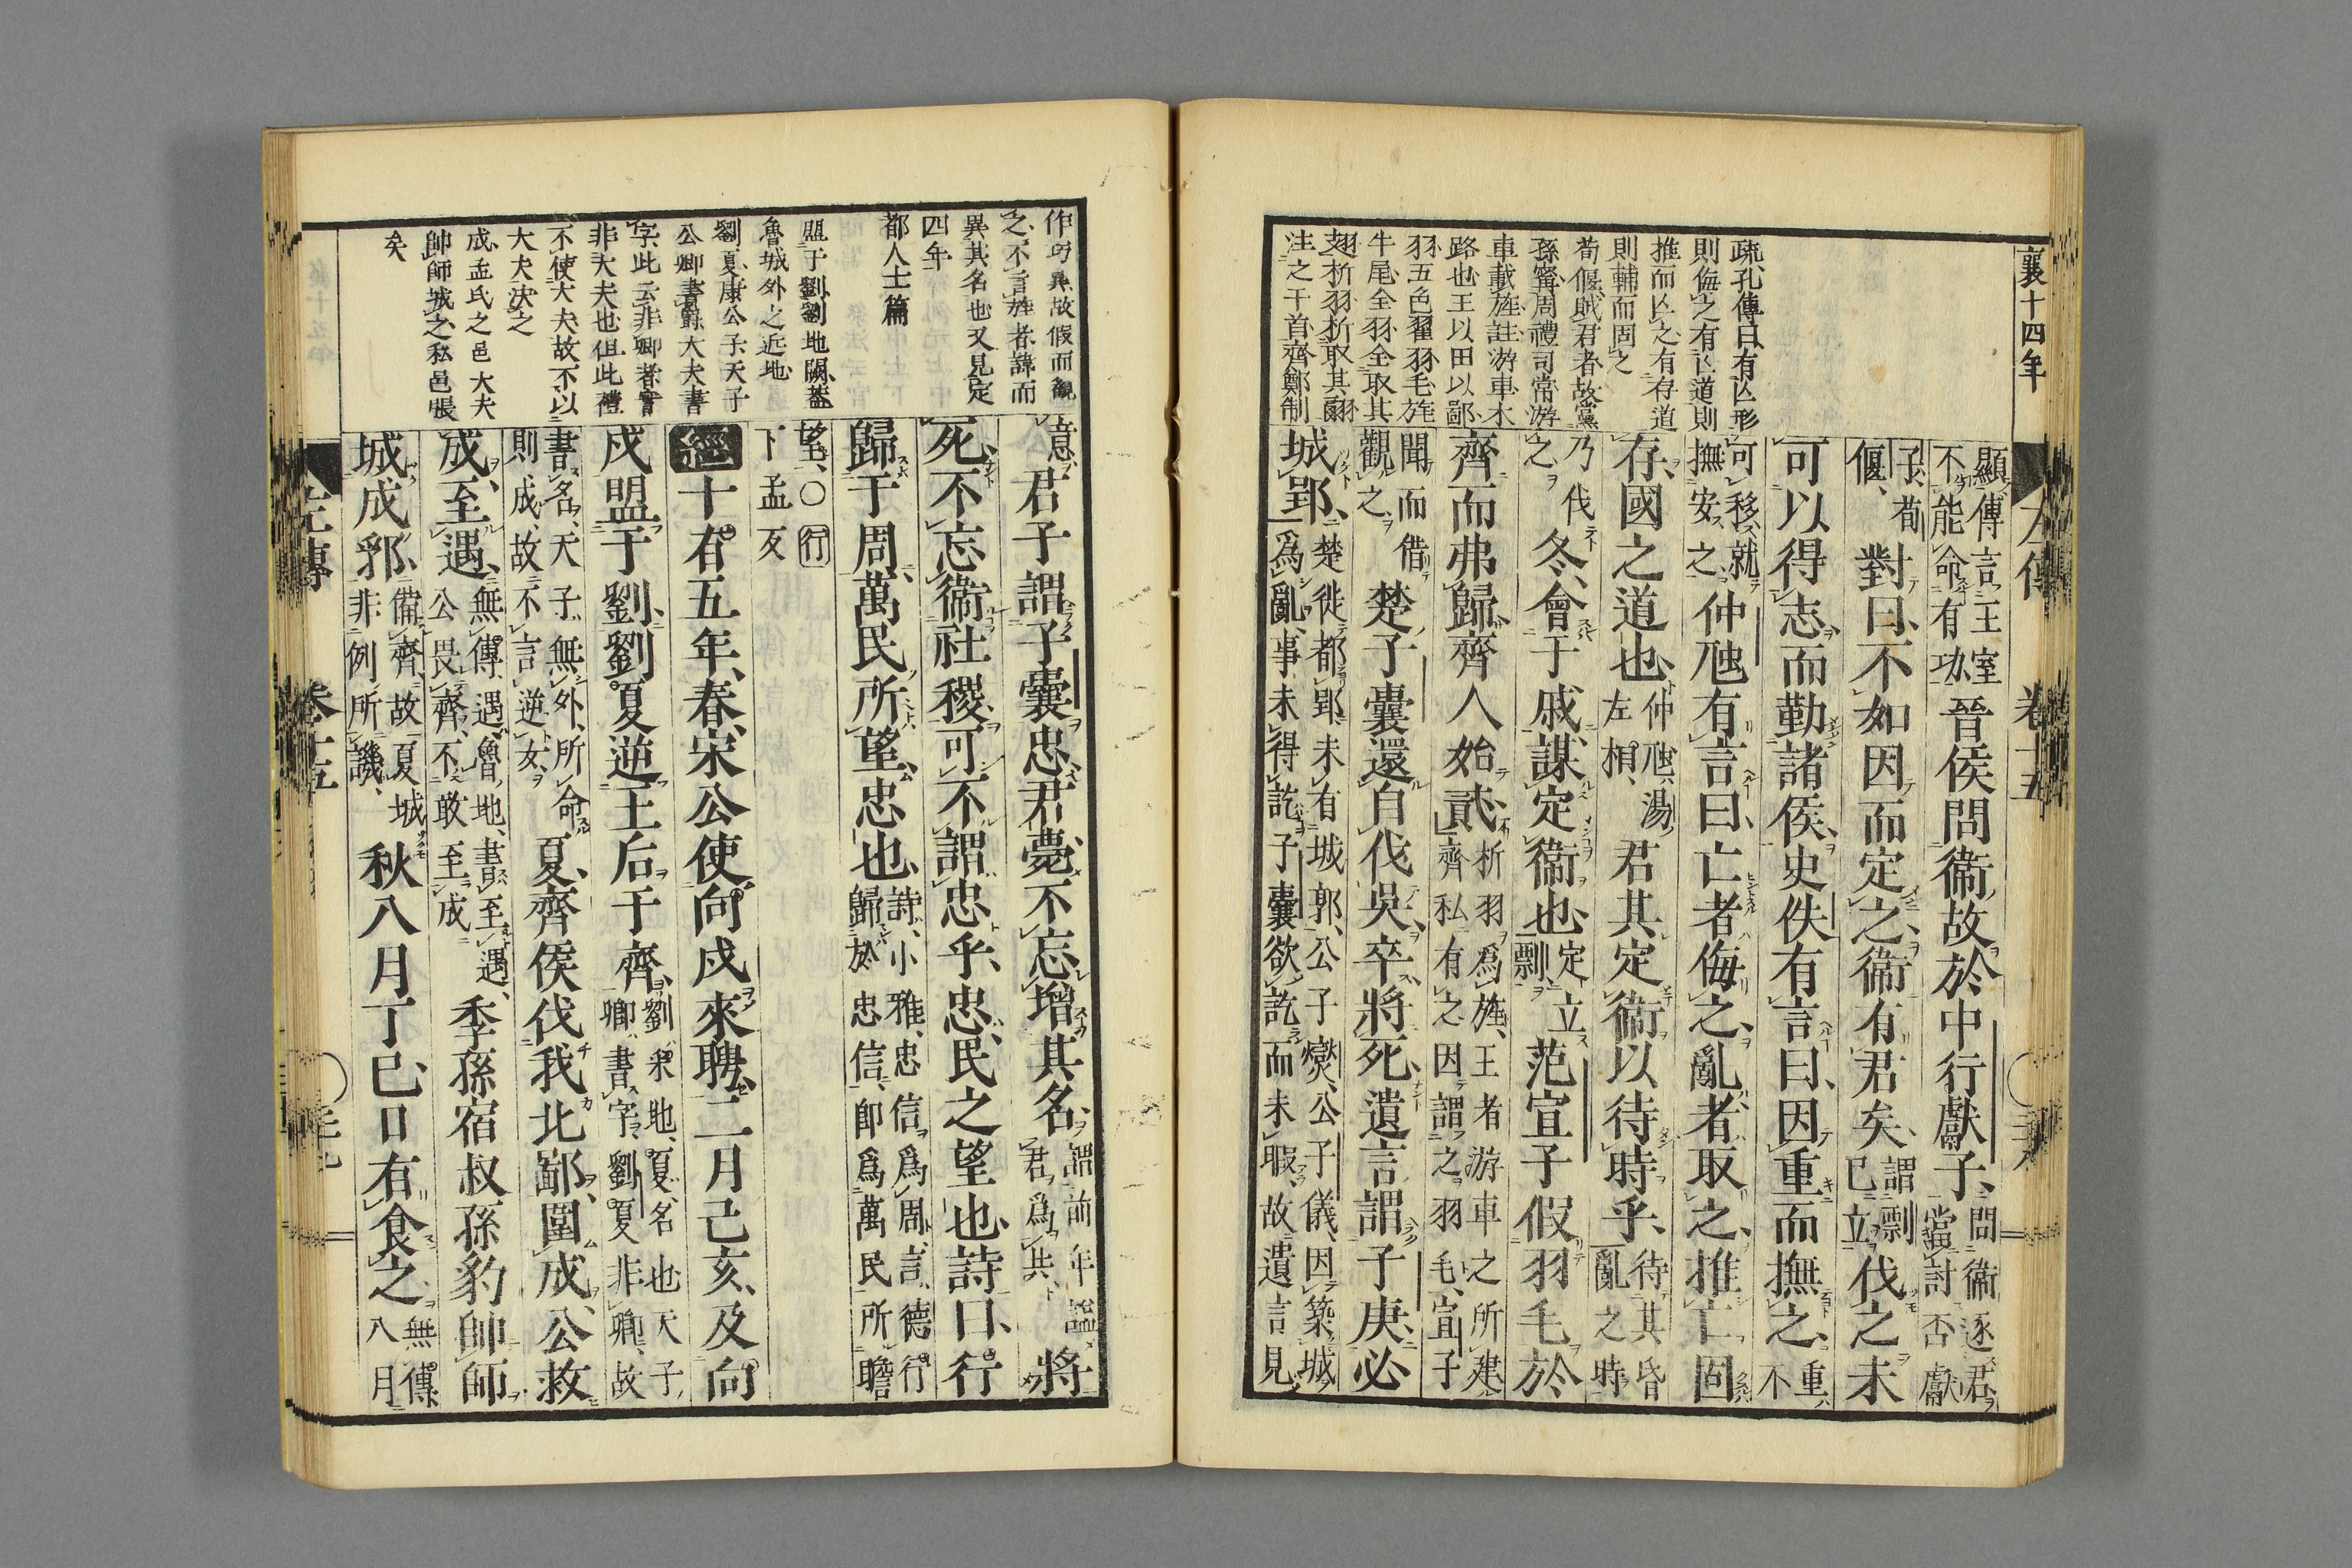 襄十四年
左傳 卷十五
疏孔傳曰有亾形
則侮之有亾道則
推而亾之有存道
則輔而固之
荀偃賊君者故黨
孫甯周禮司常游
車載旌註游車木
路也王以田以鄙
羽五色翟羽毛旄
牛尾全羽全取其
翅析羽析取其翮
注之干首齊鄭制
顯傳言王室
不能命有功
晉侯問衞故於中行獻子
問衞逐君
當討否獻
子荀
偃
對曰不如因而定之衞有君矣
謂剽
已立
伐之未
可以得志而勤諸侯史佚有言曰因重而撫之
重不
可移就
撫安之
仲虺有言曰亡者侮之亂者取之推亡固
存國之道也
仲虺湯
左相
君其定衞以待時乎
待其昏
亂之時
乃伐
之
冬會于戚謀定衞也
定立
剽
范宣子假羽毛於
齊而弗歸齊人始貳
析羽爲旌王者游車之所建
齊私有之因謂之羽毛宣子
聞而借
觀之
楚子囊還自伐吳卒將死遺言謂子庚必
城郢
楚徙都郢未有城郭公子燮公子儀因築城
爲亂事未得訖子囊欲訖而未暇故遺言見
作巧異故假而觀
之不言旌者諱而
異其名也又見定
四年
都人士篇
盟于劉劉地闕蓋
魯城外之近地
劉夏康公子天子
公卿書爵大夫書
字此云非卿者實
非大夫也但此禮
不使大夫故不以
大夫決之
成孟氏之邑大夫
帥師城之私邑張
矣
意
君子謂子囊忠君薨不忘增其名
謂前年謚
君爲共
將
死不忘衞社稷可不謂忠乎忠民之望也詩曰行
歸于周萬民所望忠也
詩小雅忠信爲周言德行
歸於忠信卽爲萬民所瞻
望○行
下孟反
經十有五年春宋公使向戌來聘二月己亥及向
戌盟于劉劉夏逆王后于齊
劉采地夏名也天子
卿書字劉夏非卿故
書名天子無外所命
則成故不言逆女
夏齊侯伐我北鄙圍成公救
成至遇
無傳遇魯地書至遇
公畏齊不敢至成
季孫宿叔孫豹帥師
城成郛
備齊故夏城
非例所譏
秋八月丁巳日有食之
無傳
八月
左傳 卷十五